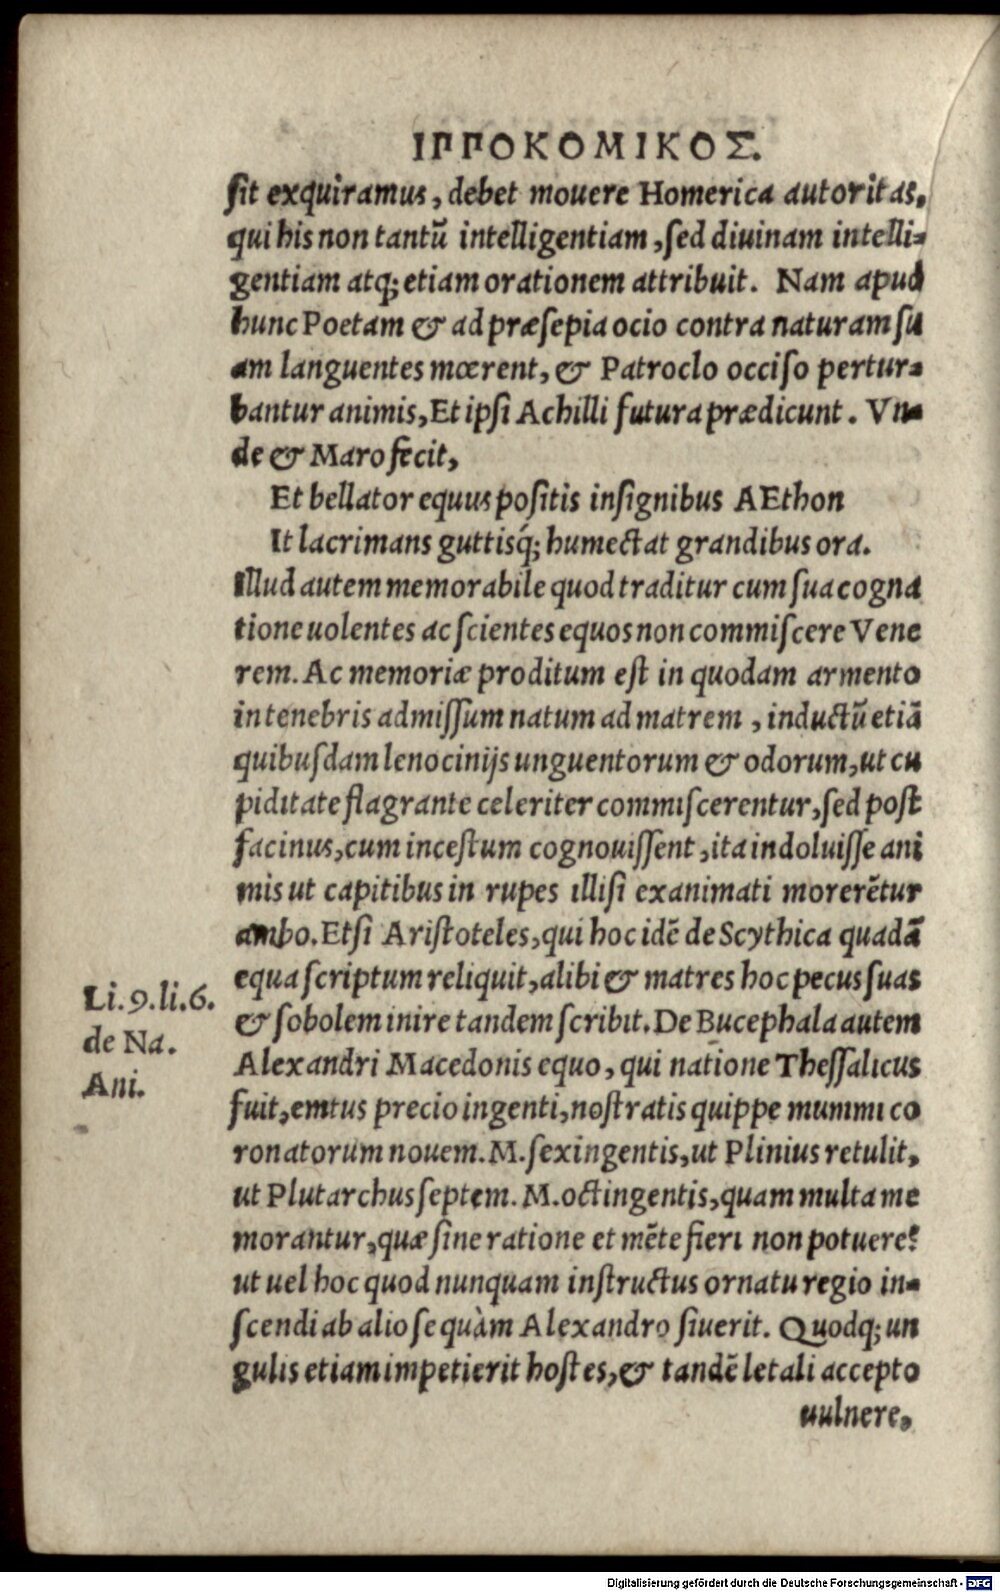 ΙΠΠΟΚΟΜΙΚΟΣ.
ſit exquiramus, debet mouere Homerica autoritas,
qui his non tantū intelligentiam, ſed diuinam intelli-
gentiam atq; etiam orationem attribuit. Nam apud
hunc Poetam & ad præſepia ocio contra naturam ſu
am languentes mœrent, & Patroclo occiſo pertur-
bantur animis, Et ipſi Achilli futura prædicunt. Vn-
de & Maro fecit,
Et bellator equus poſitis inſignibus AEthon
It lacrimans guttisq́; humectat grandibus ora.
Illud autem memorabile quod traditur cum ſua cogna
tione uolentes ac ſcientes equos non commiſcere Vene
rem. Ac memoriæ proditum eſt in quodam armento
in tenebris admiſſum natum ad matrem, inductū etiā
quibuſdam lenocinijs unguentorum & odorum, ut cu
piditate flagrante celeriter commiſcerentur, ſed poſt
facinus, cum inceſtum cognouiſſent, ita indoluiſſe ani
mis ut capitibus in rupes illiſi exanimati morerētur
ambo. Etſi Ariſtoteles, qui hoc idē de Scythica quadā
equa ſcriptum reliquit, alibi & matres hoc pecus ſuas
Li.9.li.6.
de Na.
Ani.
& ſobolem inire tandem ſcribit. De Bucephala autem
Alexandri Macedonis equo, qui natione Theſſalicus
fuit, emtus precio ingenti, noſtratis quippe mummi co
ronatorum nouem. M. ſexingentis, ut Plinius retulit,
ut Plutarchus ſeptem. M. octingentis, quam multa me
morantur, quæ ſine ratione et mēte fieri non potuere?
ut uel hoc quod nunquam inſtructus ornatu regio in-
ſcendi ab alio ſe quàm Alexandro ſiuerit. Quodq; un
gulis etiam impetierit hoſtes, & tandē letali accepto
uulnere,
Digitalisierung gefördert durch die Deutsche Forschungsgemeinschaft - DFG